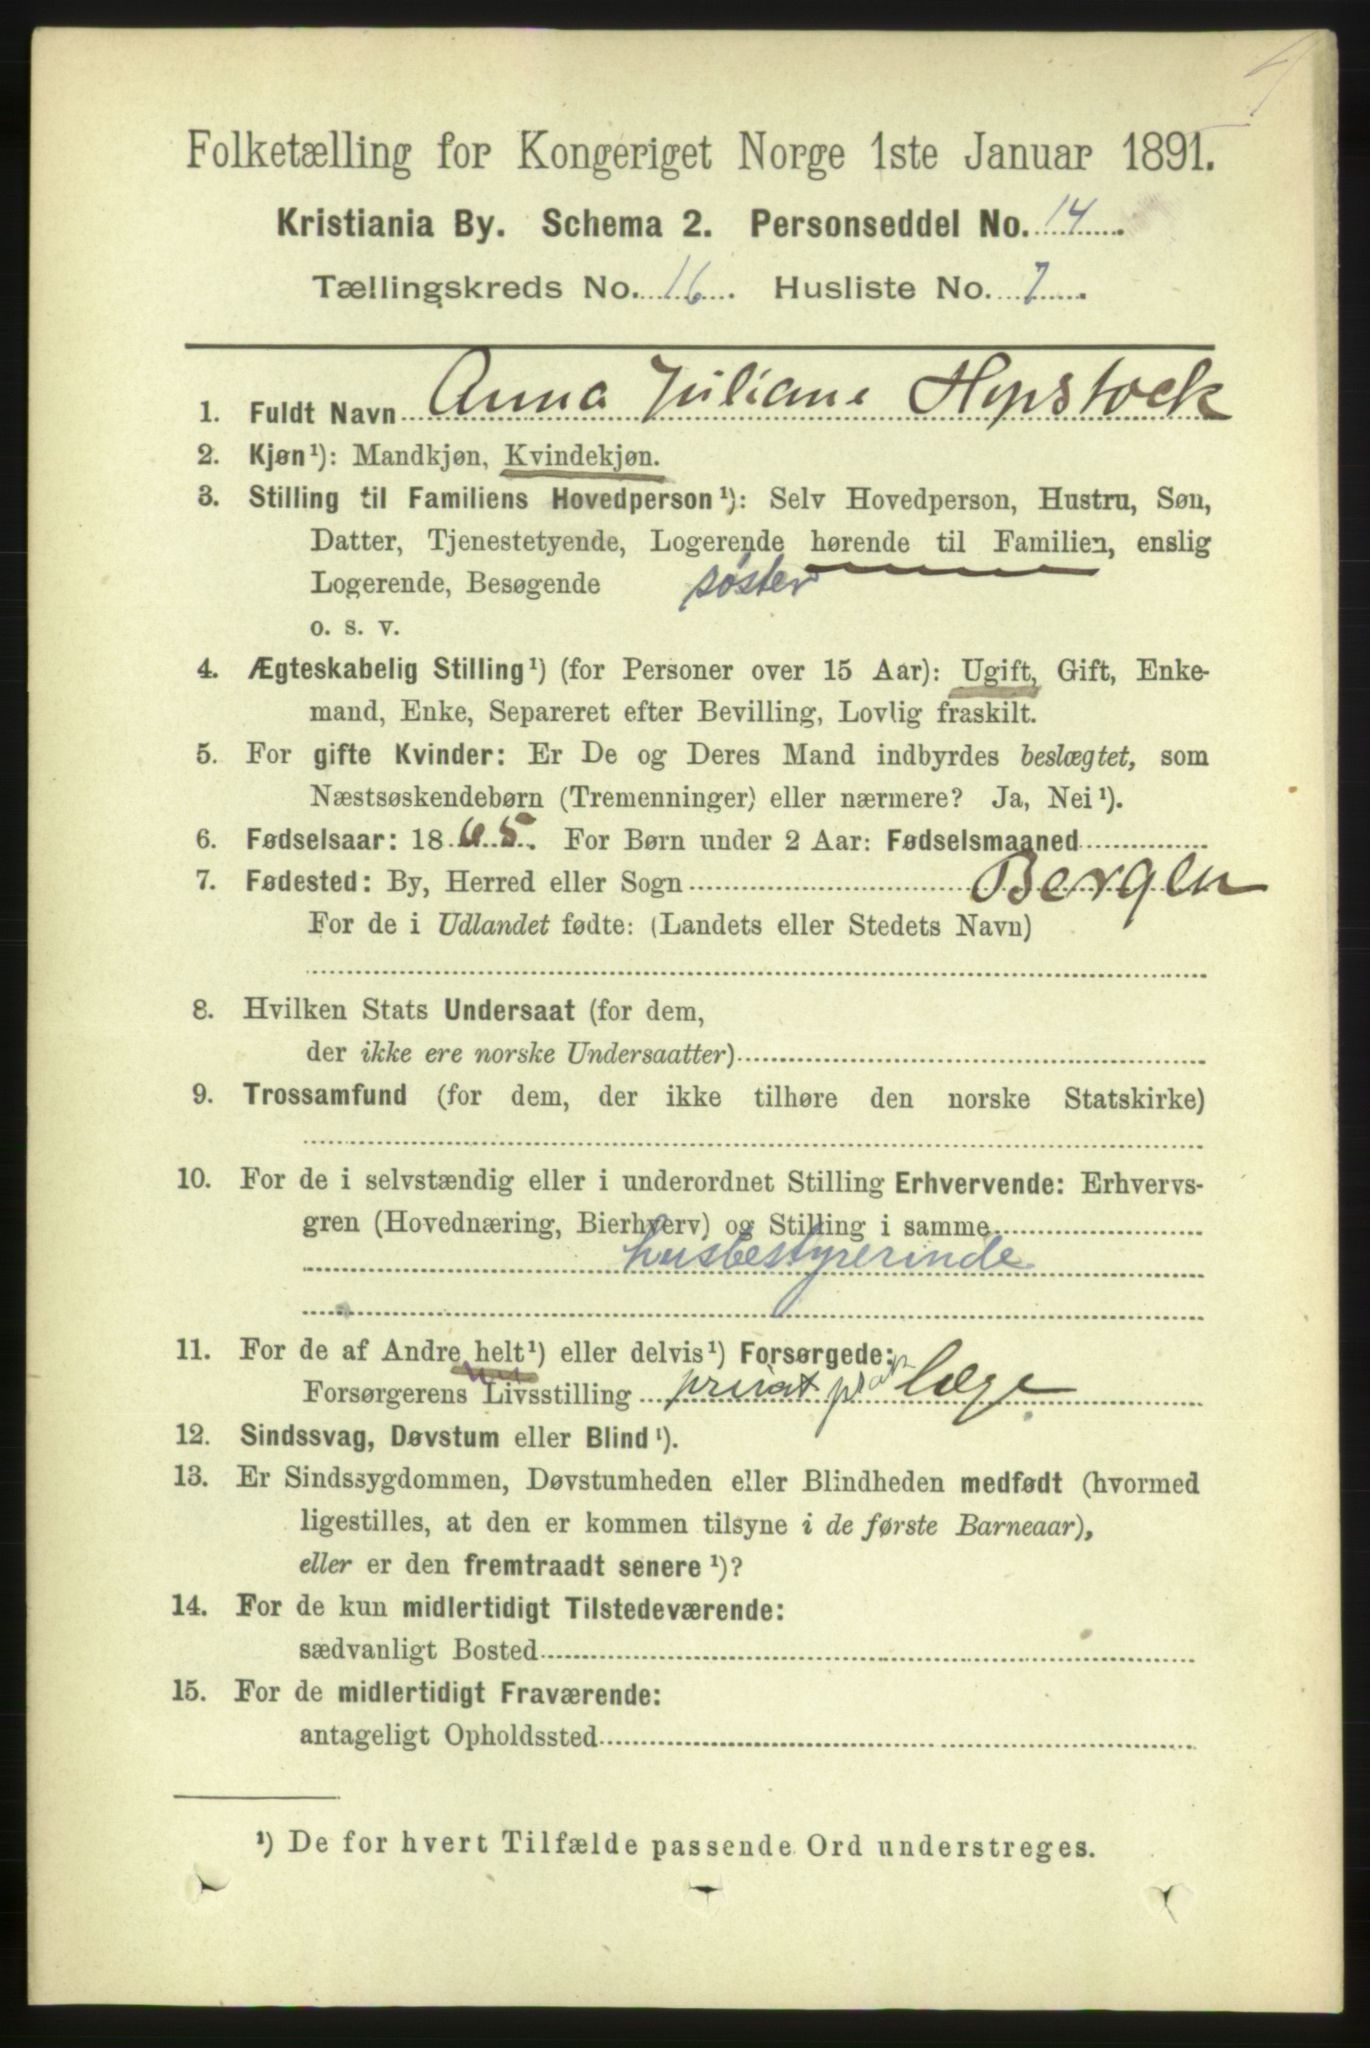 Folketælling for Kongeriget Norge 1ste Januar 1891.
Kristiania By. Schema 2. Personseddel No. 14
Tællingskreds No. 16. Husliste No. 7
1. Fuldt Navn Anna Juliane Hopstock
2. Kjøn¹): Mandkjøn, Kvindekjøn.
3. Stilling til Familiens Hovedperson¹): Selv Hovedperson, Hustru, Søn,
Datter, Tjenestetyende, Logerende hørende til Familien, enslig
Logerende, Besøgende søster
o. s. v.
4. Ægteskabelig Stilling¹) (for Personer over 15 Aar): Ugift, Gift, Enke-
mand, Enke, Separeret efter Bevilling, Lovlig fraskilt.
5. For gifte Kvinder: Er De og Deres Mand indbyrdes beslægtet, som
Næstsøskendebørn (Tremenninger) eller nærmere? Ja, Nei¹).
6. Fødselsaar: 1865. For Børn under 2 Aar: Fødselsmaaned
7. Fødested: By, Herred eller Sogn Bergen
For de i Udlandet fødte: (Landets eller Stedets Navn)
8. Hvilken Stats Undersaat (for dem,
der ikke ere norske Undersaatter)
9. Trossamfund (for dem, der ikke tilhøre den norske Statskirke)
10. For de i selvstændig eller i underordnet Stilling Erhvervende: Erhvervs-
gren (Hovednæring, Bierhverv) og Stilling i samme
husbestyrerinde
11. For de af Andre helt¹) eller delvis¹) Forsørgede:
Forsørgerens Livsstilling privat prap læge
12. Sindssvag, Døvstum eller Blind¹).
13. Er Sindssygdommen, Døvstumheden eller Blindheden medfødt (hvormed
ligestilles, at den er kommen tilsyne i de første Barneaar),
eller er den fremtraadt senere¹)?
14. For de kun midlertidigt Tilstedeværende:
sædvanligt Bosted
15. For de midlertidigt Fraværende:
antageligt Opholdssted
¹) De for hvert Tilfælde passende Ord understreges.